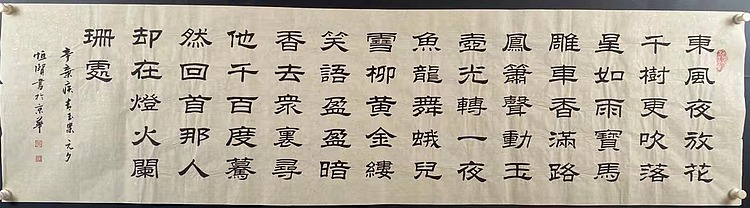 東風夜放花
千樹更吹落
星如雨寶馬
雕車香滿路
鳳簫聲動玉
壺光轉一夜
魚龍舞蛾兒
雪柳黄金縷
笑語盈盈暗
香去衆裏尋
他千百度驀
然回首那人
却在燈火闌
珊處
辛棄疾青玉案元夕
書於京華